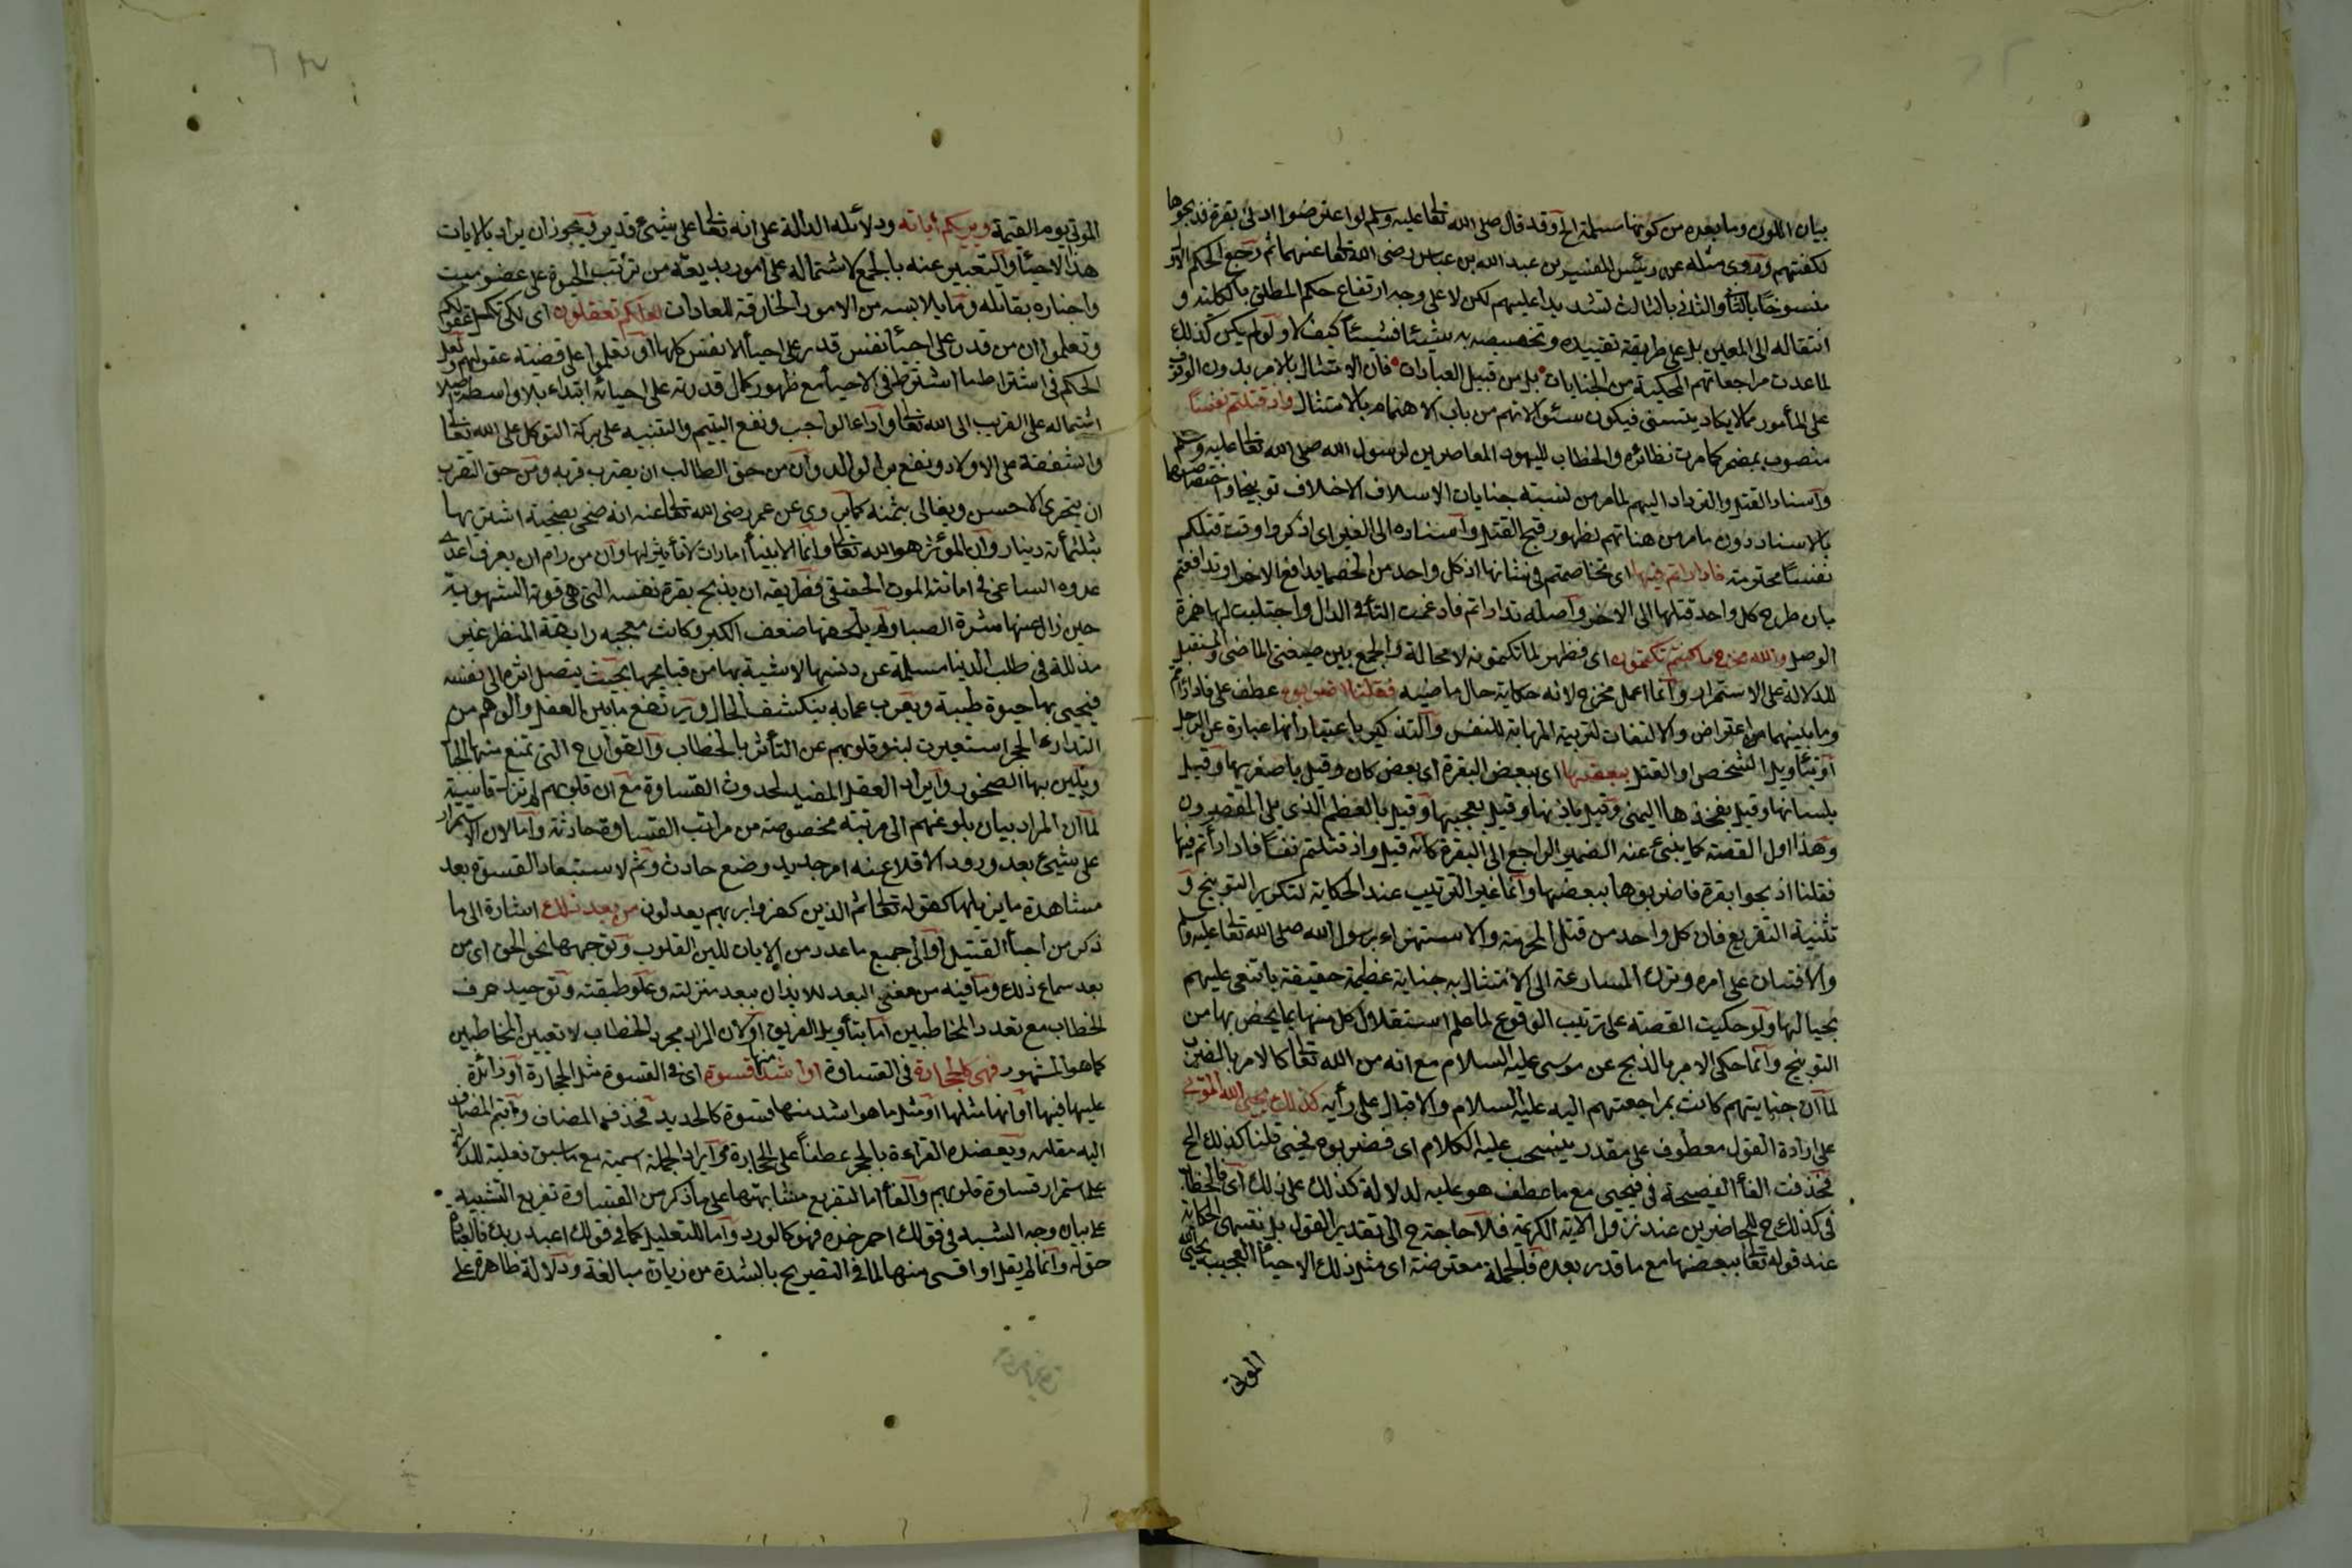 بيان اللون وما بعده من كونها مسلمة الخ وقد قال صلى الله تعا عليه وسلم لو اعترضوا ادنى بقرة فذبحوها
لكفتهم وروى مثله عن رئيس المفسرين عبد الله بن عباس رضى الله تعا عنهما ثم رجع الحكم الاول
منسوخا بالثا والثانى بالثالث تشديدا عليهم لكن لا على وجه ارتفاع حكم المطلق بالكلية و
انتقاله الى المعين بل على طريقة تقييده وتخصيصه به شيئا فشيئا كيف لا ولو لم يكن كذلك
لما عدت مراجعاتهم المحكية من الجنايات بل من قبيل العبادات فان الامتثال بالامر بدون الوقوف
على المأمور مما لا يكاد يتسنى فيكون سئوالاتهم من باب الاهتمام بالامتثال واذ قتلتم نفسا
منصوب بمضمر كما مرت نظائره والخطاب لليهود المعاصرين لرسول الله صلى الله تعا عليه وسلم
واسناد القتل والتدارء اليهم لما مر من نسبة جنايات الاسلاف الاخلاف توبيخا وتخصيصها
بالاسناد دون ما مر من هناتهم لظهور قبح القتل واسناده الى الغير اى اذكروا وقت قتلكم
نفسا محترمة فاداراتم فيها اى تخاصمتم فى شأنها اذ كل واحد من الخصما يدافع الاخر او تدافعتم
بان طرح كل واحد قتلها الى الاخر واصله تداراتم فادغمت التأ فى الدال واجتلبت لها همزة
الوصل والله مخرج ما كنتم تكتمون اى مظهر لما تكتمونه لا محالة والجمع بين صيغتى الماضى والمستقبل
للدلالة على الاستمرار وانما اعمل مخرج لانه حكاية حال ماضيه فقلنا اضربوه عطف على فاداراتم
وما بينهما اعتراض والالتفات لتربية المهابة للنفس والتذكير باعتبار انها عبارة عن الرجل
او بتأويل الشخص او القتيل ببعضها اى ببعض البقرة اى بعض كان وقيل باصغريها وقيل
بلسانها وقيل بفخذها اليمنى وقيل باذنها وقيل بعجبها وقيل بالعظم الذى يلى الغضروف
وهذا اول القصة كما ينبئ عنه الضمير الراجع الى البقرة كانه قيل واذ قتلتم نفسا فادارأتم فيها
فقلنا اذبحوا بقرة فاضربوها ببعضها وانما غير الترتيب عند الحكاية لتكرير التوبيخ و
تثنية التقريع فان كل واحد من قتل المحرمة والاستهزاء برسول الله صلى الله تعا عليه وسلم
والافتيات على امره وترك المسارعة الى الامتثال به جناية عظيمة حقيقة بان تنعى عليهم
بحيالها ولو حكيت القصة على ترتيب الوقوع لما علم استقلال كل منها بما يخص بها من
التوبيخ وانما حكى الامر بالذبح عن موسى عليه السلام مع انه من الله تعا كالامر بالضرب
لما ان جنايتهم كانت بمراجعتهم اليه عليه السلام والافتيات على رأيه كذلك يحيى الله الموتى
على ارادة القول معطوف على مقدر ينسحب عليه الكلام اى فضربوه فحيى قلنا كذلك الخ
فحذفت الفأ الفصيحة فى فحيى مع ما عطف هو عليه لدلالة كذلك على ذلك اى فالخطاب
فى كذلك ح للحاضرين عند نزول الاية الكريمة فلا حاجة ح الى تقدير القول بل تنتهى الحكاية
عند قوله تعا ببعضها مع ما قدر بعده فالجملة معترضة اى مثل ذلك الاحيأ العجيب يحيى الله
الموتى
الموتى يوم القيمة ويريكم اياته ودلائله الدالة على انه تعا على كل شيئ قدير ويجوز ان يراد بالايات
هذا الاحيأ والتعبير عنه بالجمع لاشتماله على امور بديعة من ترتب الحيوة على عضو ميت
واخباره بقاتله وما يلابسه من الامور الخارقة للعادات لعلكم تعقلون اى لكى تكمل عقولكم
وتعلموا ان من قدر على احيأ نفس قدر على احيأ الانفس كلها او تعملوا على قضية عقولهم ولعل
الحكم فى اشتراط ما اشترط فى الاحيأ مع ظهور كمال قدرته على احيائه ابتداء بلا واسطة اصلا
اشتماله على التقرب الى الله تعا واداء الواجب ونفع اليتيم والتنبيه على بركة التوكل على الله تعا
والشفقة على الاولاد ونفع بر الوالد وان من حق الطالب ان يقرب قربة ومن حق المتقرب
ان يتحرى الاحسن ويغالى بثمنه كما يروى عن عمر رضى الله تعا عنه انه ضحى بضحية اشتريها
بثلثمأة دينار وان المؤثر هو الله تعا وانما الاسباب امارات لا تأثير لها وان من رام ان يعرف اعدى
عدوه الساعى فى اماتته الموت الحقيقى فطريقه ان يذبح بقرة نفسه التى هى قوته الشهوية
حين زال عنها شرة الصبا ولم يلحقها ضعف الكبر وكانت معجبه رايقة المنظر غير
مذللة فى طلب الدنيا مسلمة عن دنسها لاشية بها من قبايحها بحيث يتصل اثره الى نفسه
فيحيى بها حيوة طيبة ويعرب عما به ينكشف الحال ويرتفع ما بين العقل والوهم من
التدارء الجر استعيرت لنبو قلوبهم عن التأثر بالخطاب والقوارح التى تميع منها الجبال
ويلين بها الصخور وايراد الفعل المفيد لحدوث القساوة مع ان قلوبهم لم تزل قاسية
لما ان المراد بيان بلوغهم الى مرتبة مخصوصة من مراتب القساوة حادثة واما لان الاستمرار
على شيئ بعد ورود الاقلاع عنه امر جديد وضع حادث وثم لاستبعاد القسوة بعد
مشاهدة ما يزيلها كقوله تعا ثم الذين كفروا بربهم يعدلون من بعد ذلك اشارة الى ما
ذكر من احيأ القتيل او الى جميع ما عدد من الايات للين القلوب وتوجهها نحو الحق اى من
بعد سماع ذلك وما فيه من معنى البعد للايذان ببعد منزلته وعلو طبقته وتوحيد حرف
الخطاب مع تعدد المخاطبين اما بتأويل الفريق او لان المراد مجرد الخطاب لا تعيين المخاطبين
كما هو المشهور فهى كالحجارة فى القساوة او اشد منها قسوة اى فى القسوة مثل الحجارة او زائدة
عليها فيها او انها مثلها او مثل ما هو اشد منها قسوة كالحديد فحذف المضاف واقيم المضاف
اليه مقامه ويعضده القراءة بالجر عطفا على الحجارة وايراد الجملة اسمية مع ما سبق فعلية للدلالة
على استمرار قساوة قلوبهم والفأ اما لتفريع مشابهتها على ما ذكر من القساوة تفريع التشبيه
على بيان وجه الشبه فى قولك احمر خده فهو كالورد واما للتعليل كما فى قولك اعبد ربك فالعبادة
حق له وانما لم يقل او اقسى منها لما فى التصريح بالشدة من زيادة مبالغة ودلالة ظاهرة على